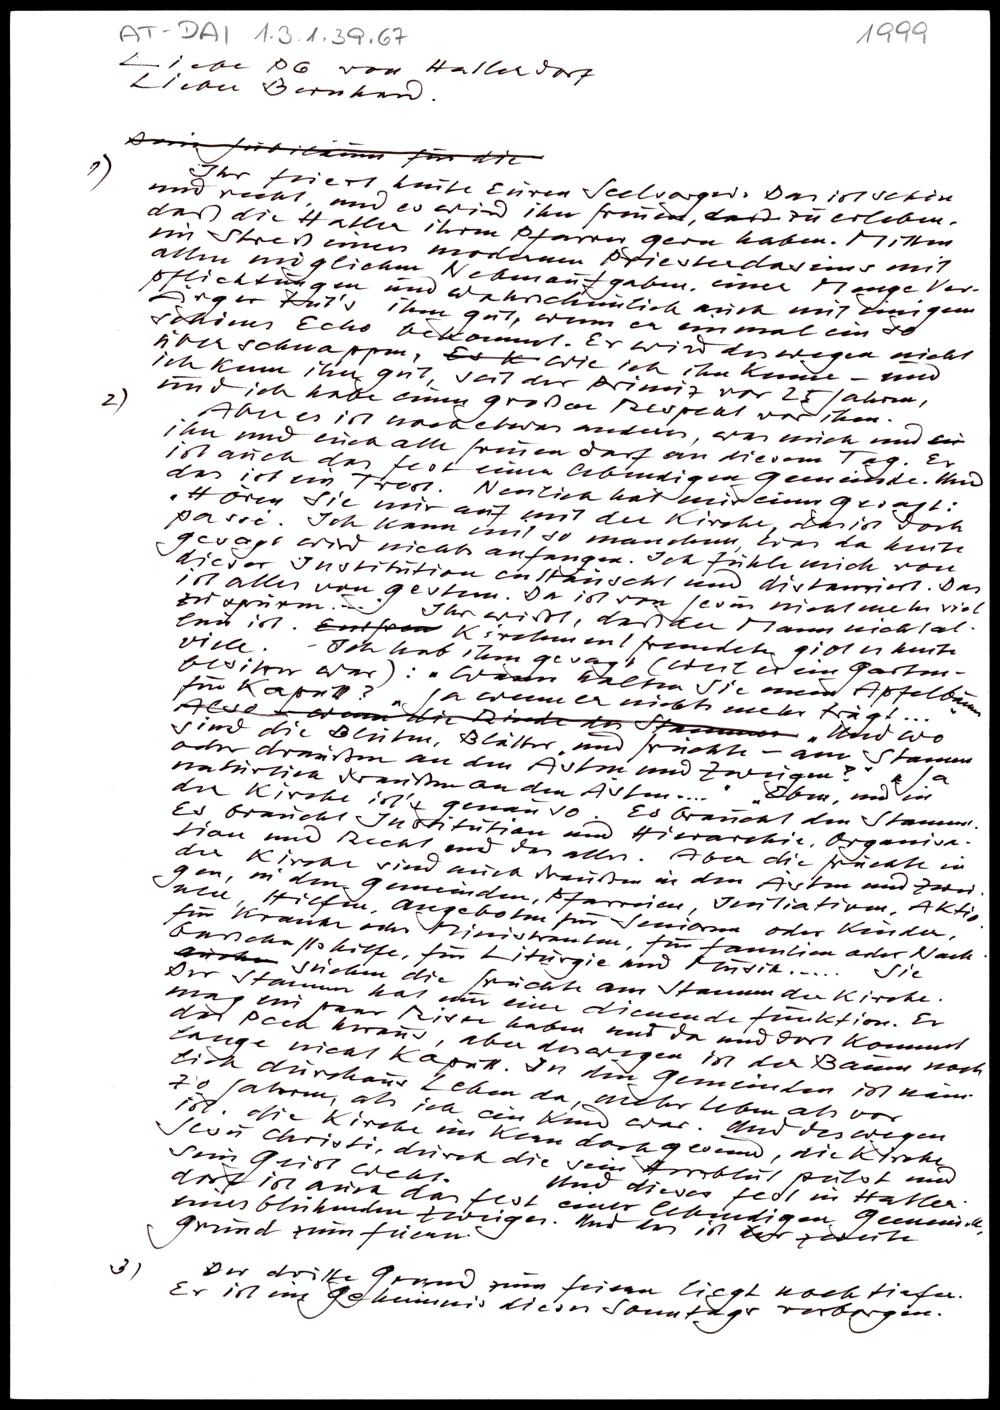 AT-DAI 1.3.1.39.67 1999
Liebe PG von Hatterdorf
Lieber Bernhard.
Dein Jubiläum für die
1) Ihr feiert heute Euren Seelsorger. Das ist schön
und recht, und es wird ihn freuen, das zu erleben,
daß die Hatter ihren Pfarrer gern haben. Mitten
im Streß eines modernen Priesterdaseins mit
allen möglichen Nebenaufgaben, einer Menge Ver-
pflichtungen und wahrscheinlich auch mit einigem
Ärger tut's ihm gut, wenn er einmal ein so
schönes Echo bekommt. Er wird deswegen nicht
überschnappen, Es k wie ich ihn kenne – und
ich kenn ihn gut, seit der Primiz vor 25 Jahren,
und ich habe einen großen Respekt vor ihm.
2) Aber es ist noch etwas anderes, was mich und
ihn und euch alle freuen darf an diesem Tag. Er
ist auch das Fest einer lebendigen Gemeinde. Und
das ist ein Trost. Neulich hat mir einer gesagt:
"Hören Sie mir auf mit der Kirche, das ist doch
passé. Ich kann mit so manchem, was da heute
gesagt wird nichts anfangen. Ich fühle mich von
dieser Institution enttäuscht und distanziert. Das
ist alles von gestern. Da ist von Jesus nicht mehr viel
zu spüren...." Ihr wißt, daß der Mann nicht al-
lein ist. Kirchenentfremdete gibt es heute
viele. - Ich hab ihm gesagt (weil er ein Garten-
besitzer war): "Wann halten Sie einen Apfelbaum
für kaputt?" "Ja wenn er nichts mehr trägt...
Also – wenn die Rinde des Stammes "Und wo
sind die Blüten, Blätter und Früchte – am Stamm
oder draußen an den Ästen und Zweigen?" "Ja
natürlich draußen an den Ästen...." "Eben, und in
der Kirche ist's genau so. Es braucht den Stamm.
Es braucht Institution und Hierarchie, Organisa-
tion und Recht und das alles. Aber die Früchte in
der Kirche sind auch draußen in den Ästen und Zwei-
gen, in den Gemeinden, Pfarreien, Initiativen, Aktio-
nen, Hilfen, Angeboten für Senioren oder Kinder,
für Kranke oder Ministranten, für Familien oder Nach-
barschaftshilfe, für Liturgie und Musik..... Sie
suchen die Früchte am Stamm der Kirche.
Der Stamm hat nur eine dienende Funktion. Er
mag ein paar Risse haben und da und dort kommt
das Pech heraus, aber deswegen ist der Baum noch
lange nicht kaputt. In den Gemeinden ist näm-
lich durchaus Leben da, mehr Leben als vor
70 Jahren, als ich ein Kind war. Und deswegen
ist die Kirche im Kern doch gesund, die Kirche
Jesu Christi, durch die sein Herzblut pulst und
sein Geist weht. Und dieses Fest in Hatter-
dorf ist auch das Fest einer lebendigen Gemeinde,
eines blühenden Zweiges. Und das ist der zweite
Grund zum feiern.
3) Der dritte Grund zum feiern liegt noch tiefer.
Er ist im Geheimnis dieses Sonntags verborgen.